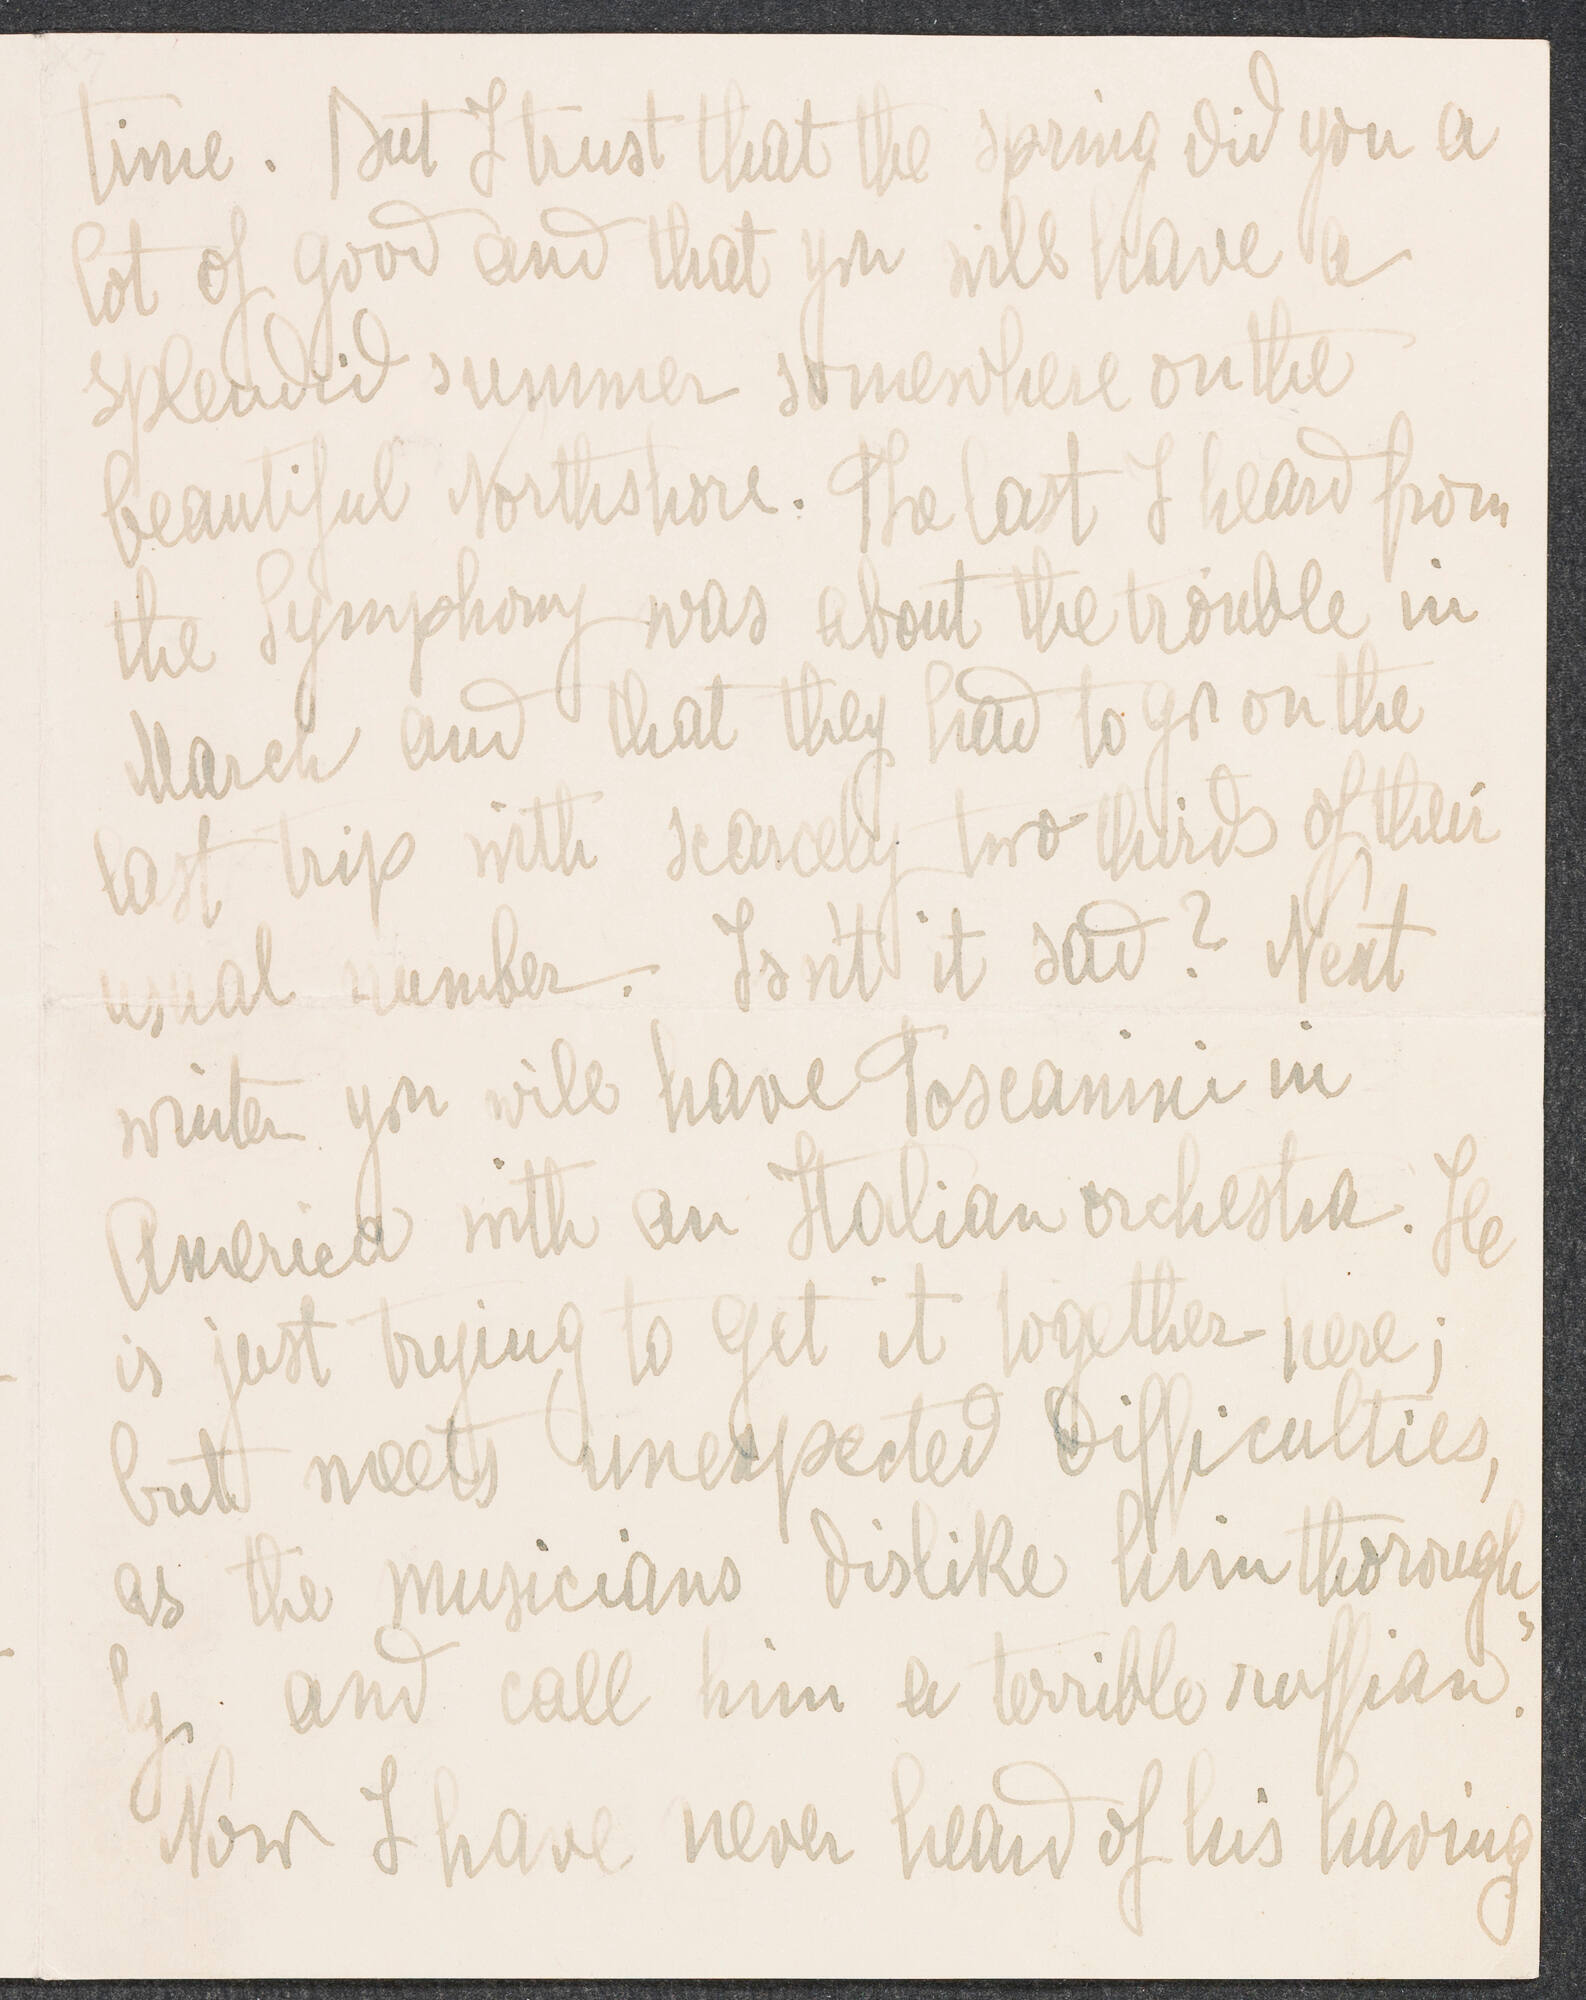 time. But I trust that the spring did you a
lot of good and that you will have a
splendid summer somewhere on the
beautiful Northshore. The last I heard from
the Symphony was about the trouble in
March and that they had to go on the
last trip with scarcely two thirds of their
usual number. Isn't it sad? Next
winter you will have Toscanini in
America with an Italian orchestra. He
is just trying to get it together here;
but meets unexpected difficulties,
as the musicians dislike him thorough-
ly, and call him a terrible ruffian.
Now I have never heard of his having